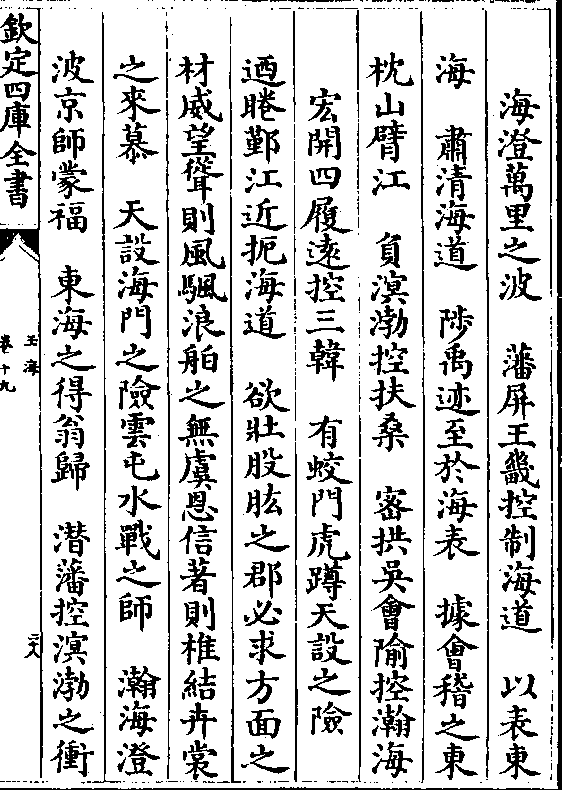 海澄萬里之波　藩屏王畿控制海道　以表東
海　肅清海道　陟禹迹至於海表　據會稽之東
枕山臂江　負溟渤控扶桑　密拱吳會隃控瀚海
宏開四履遠控三韓　有蛟門虎蹲天設之險
迺睠鄞江近扼海道　欲壯股肱之郡必求方面之
材威望聳則風颿浪舶之無虞恩信著則椎結卉裳
之來慕　天設海門之險雲屯水戰之師　瀚海澄
波京師蒙福　東海之得翁歸　潛藩控溟渤之衝
欽定四庫全書
玉海
卷十九
二八